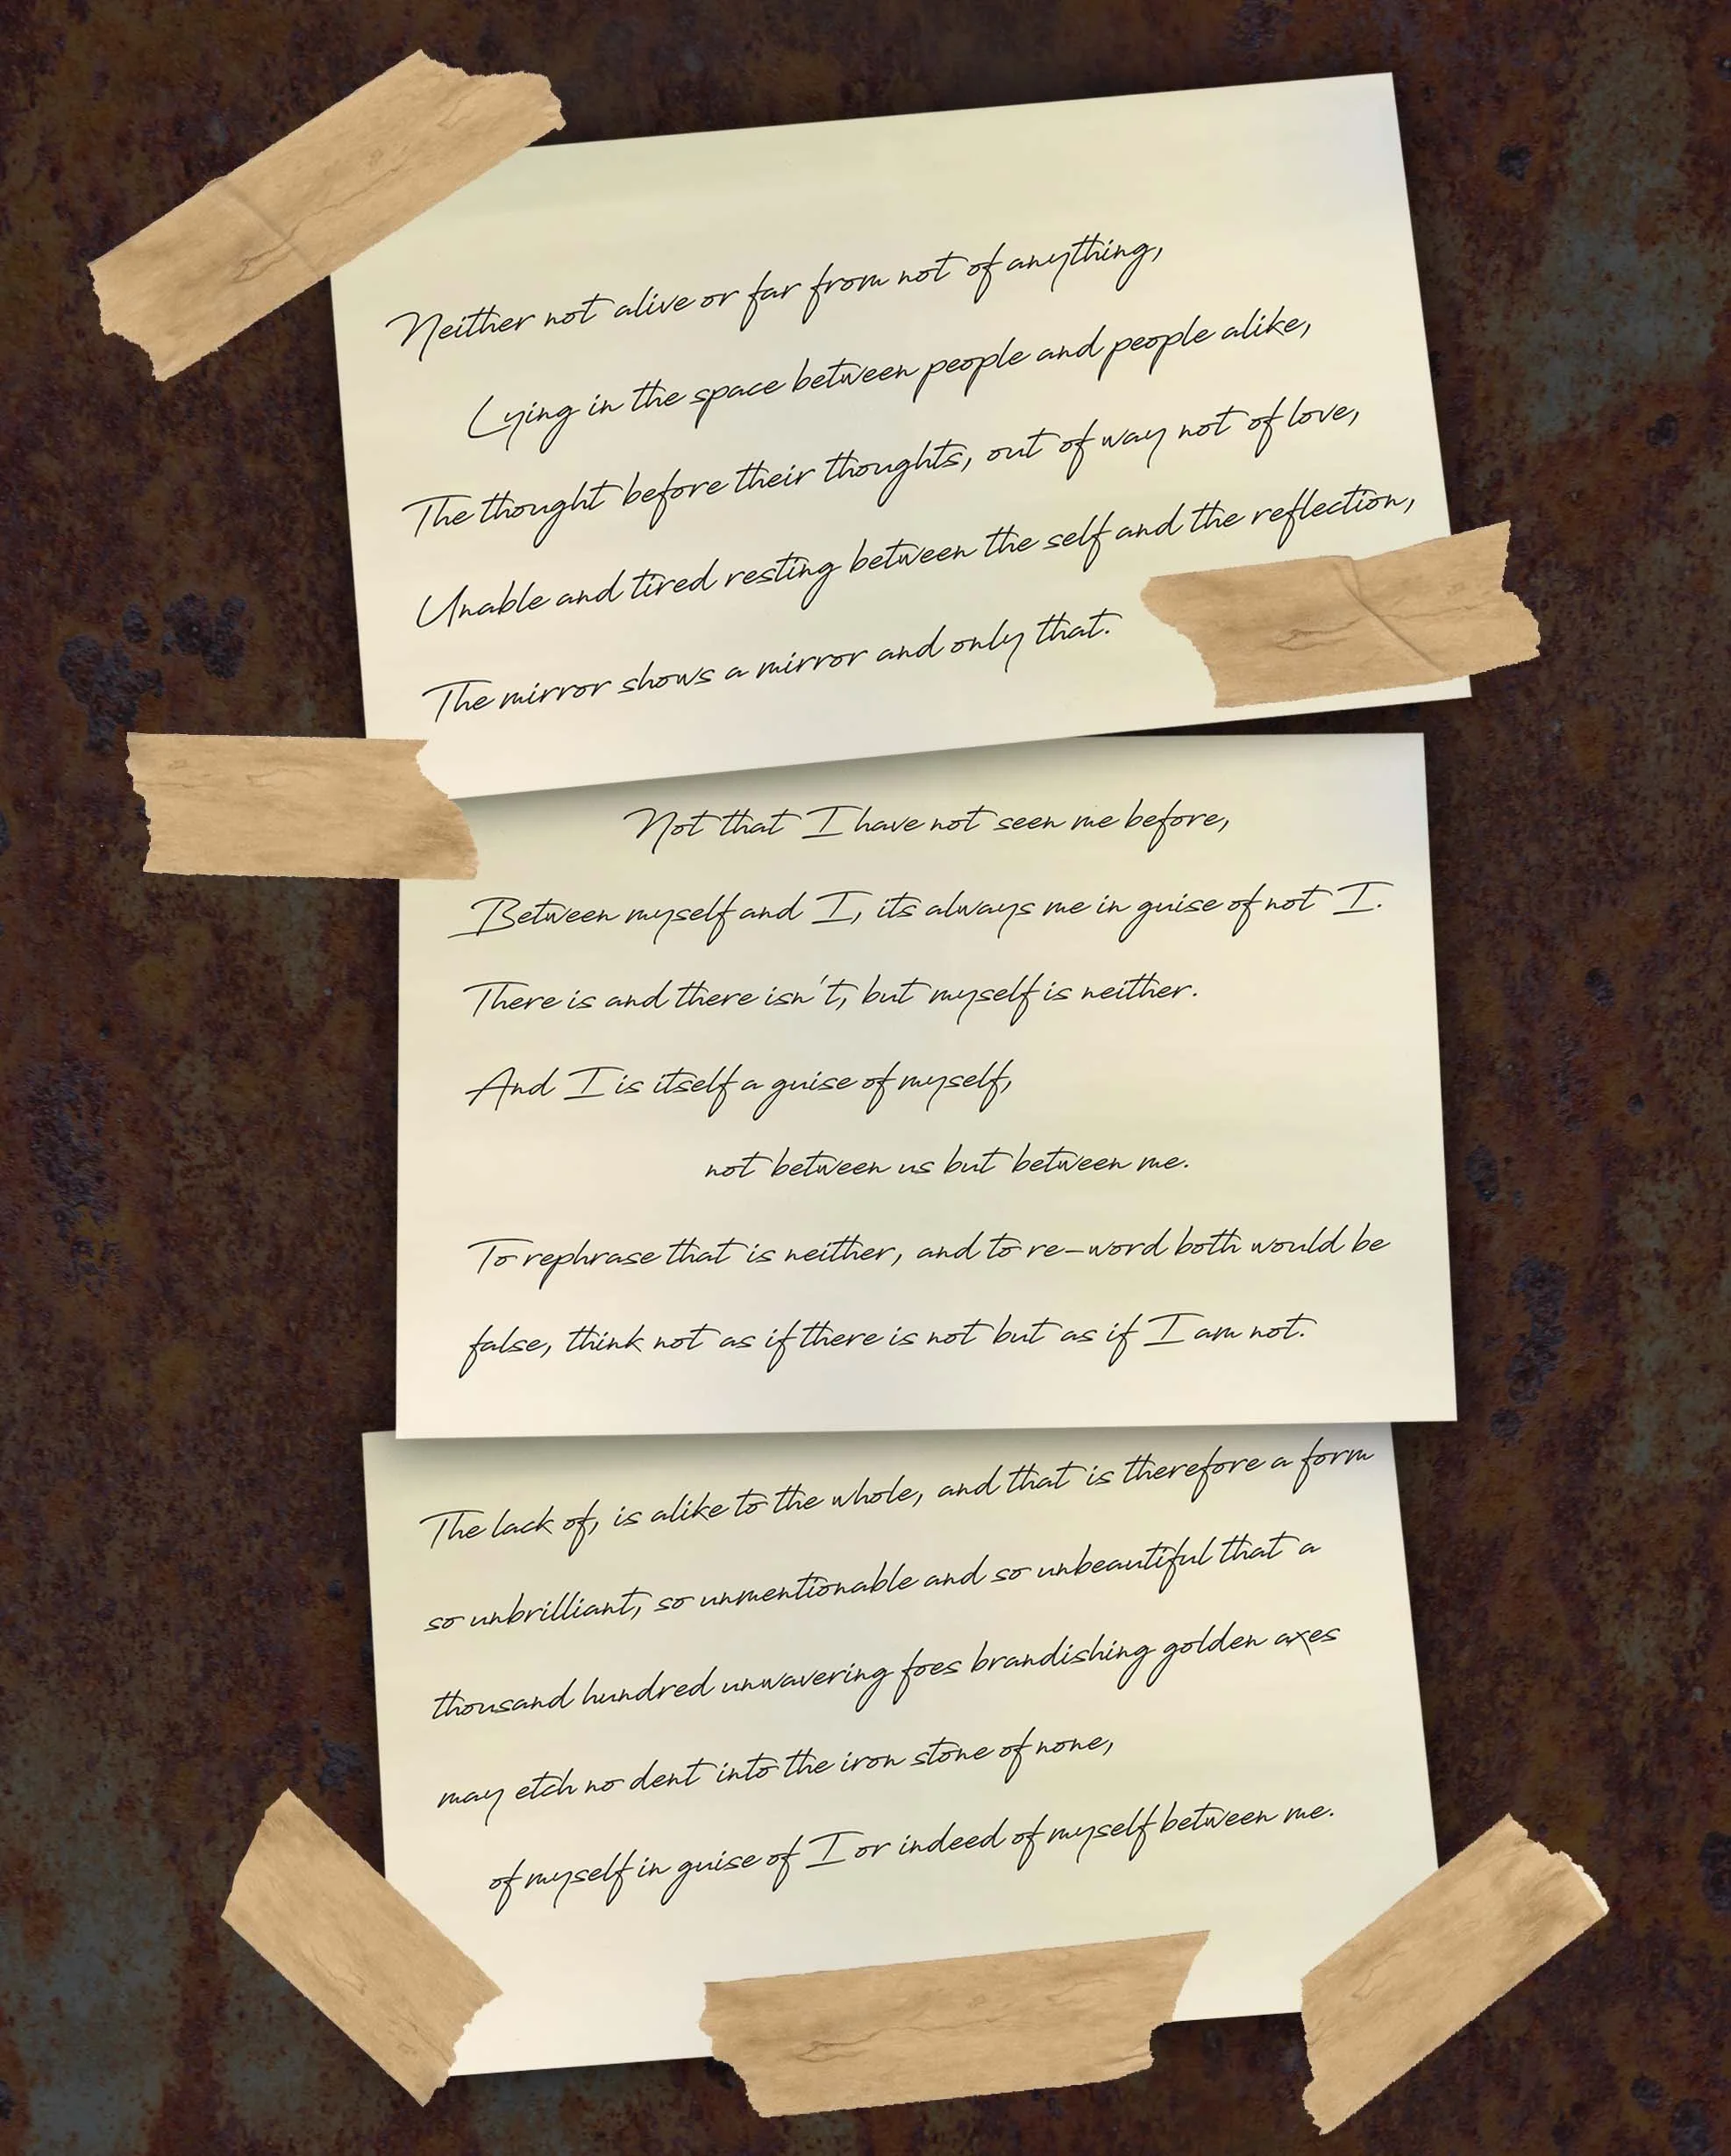 Neither not alive or far from not of anything,
Lying in the space between people and people alike,
The thought before their thoughts, out of way not of love,
Unable and tired resting between the self and the reflection,
The mirror shows a mirror and only that.
Not that I have not seen me before,
Between myself and I, its always me in guise of not I.
There is and there isn't, but myself is neither.
And I is itself a guise of myself,
not between us but between me.
To rephrase that is neither, and to re-word both would be
false, think not as if there is not but as if I am not.
The lack of, is alike to the whole, and that is therefore a form
so unbrilliant, so unmentionable and so unbeautiful that a
thousand hundred unwavering foes brandishing golden axes
may etch no dent into the iron stone of none,
of myself in guise of I or indeed of myself between me.